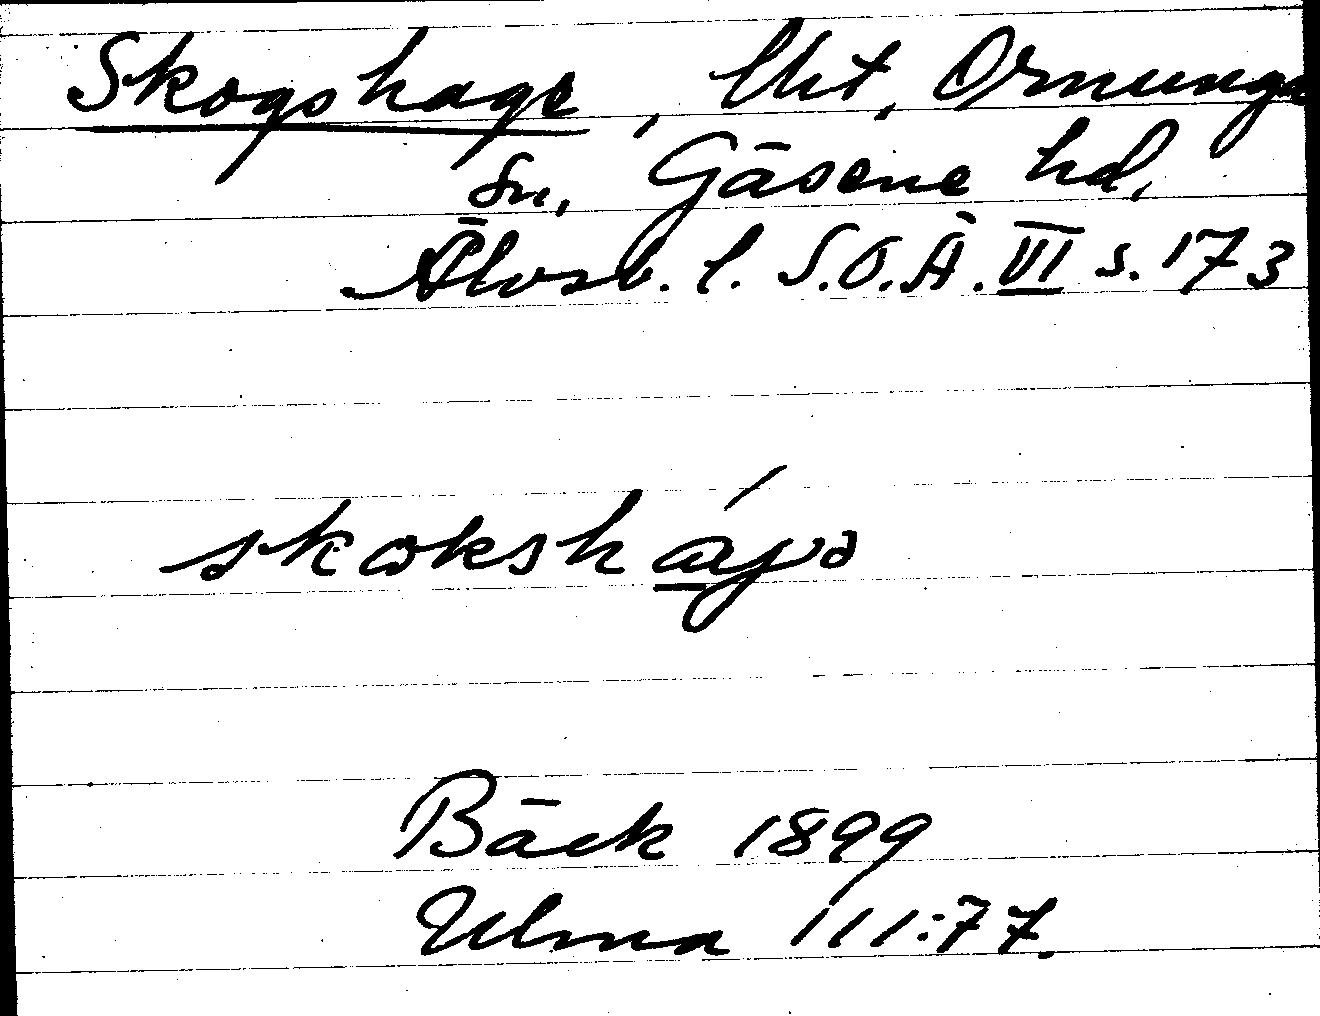 Skogshage, lht, Ornunga
sn, Gäsene hd,
Älvsb. l. S.O.Ä. VI s. 173
skoksháya
Bäck 1899
Ulma 111:77.